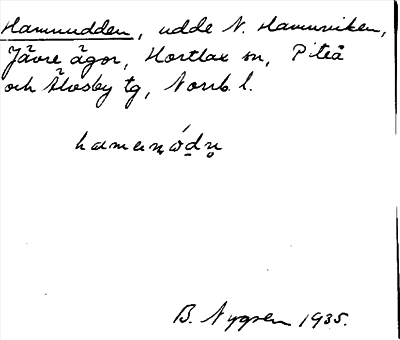 Hamnudden, udde N. Hamnviken,
Jävre ägor, Hortlax sn, Piteå
och Älvsby tg, Norrb. l.
B. Nygren 1935.